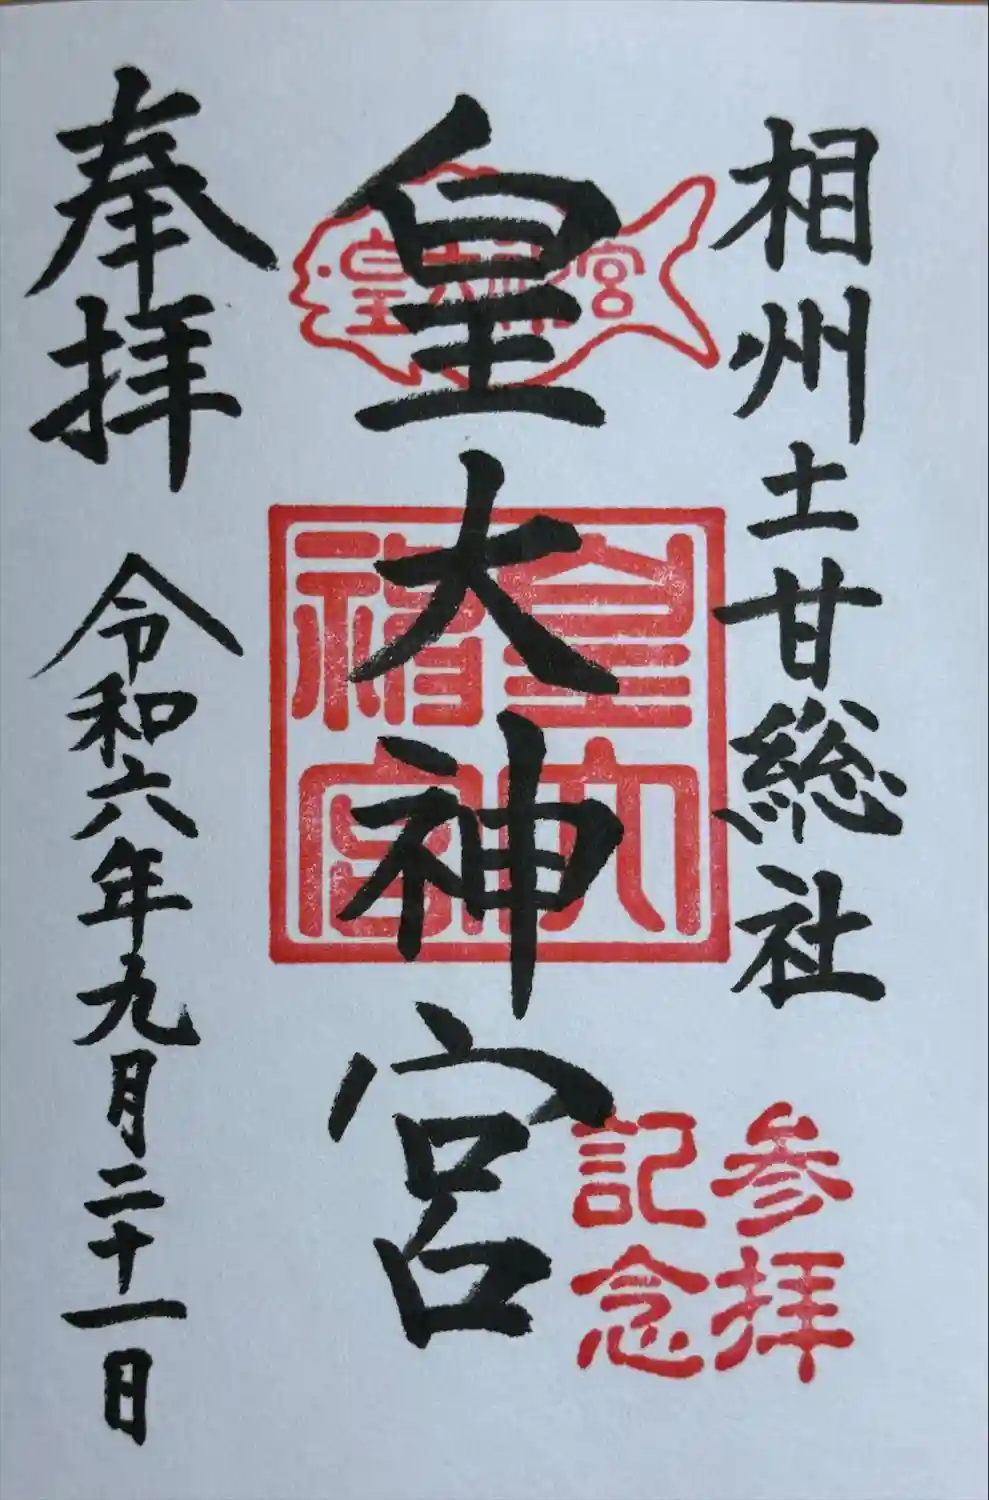 相州土甘総社
皇大神宮
奉拝
令和六年九月二十一日
皇大神宮
皇大神宮
参拝
記念